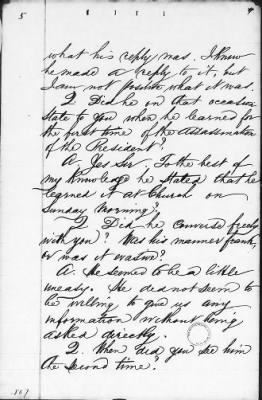 5
what his reply was. I knew
he made a reply to it, but
I am not positive what it was.
Q. Did he on that occasion
State to you when he learned for
the first time of the Assassination
of the President?
A. Yes Sir, To the best of
my Knowledge he Stated that he
learned it at Church on
Sunday Morning.
Q. Did he converse freely
with you? Was his manner frank,
or was it evasive?
A. He seemed to be a little
uneasy. He did not seem to
be willing to give us any
information without being
asked directly.
Q. When did you see him
the second time?